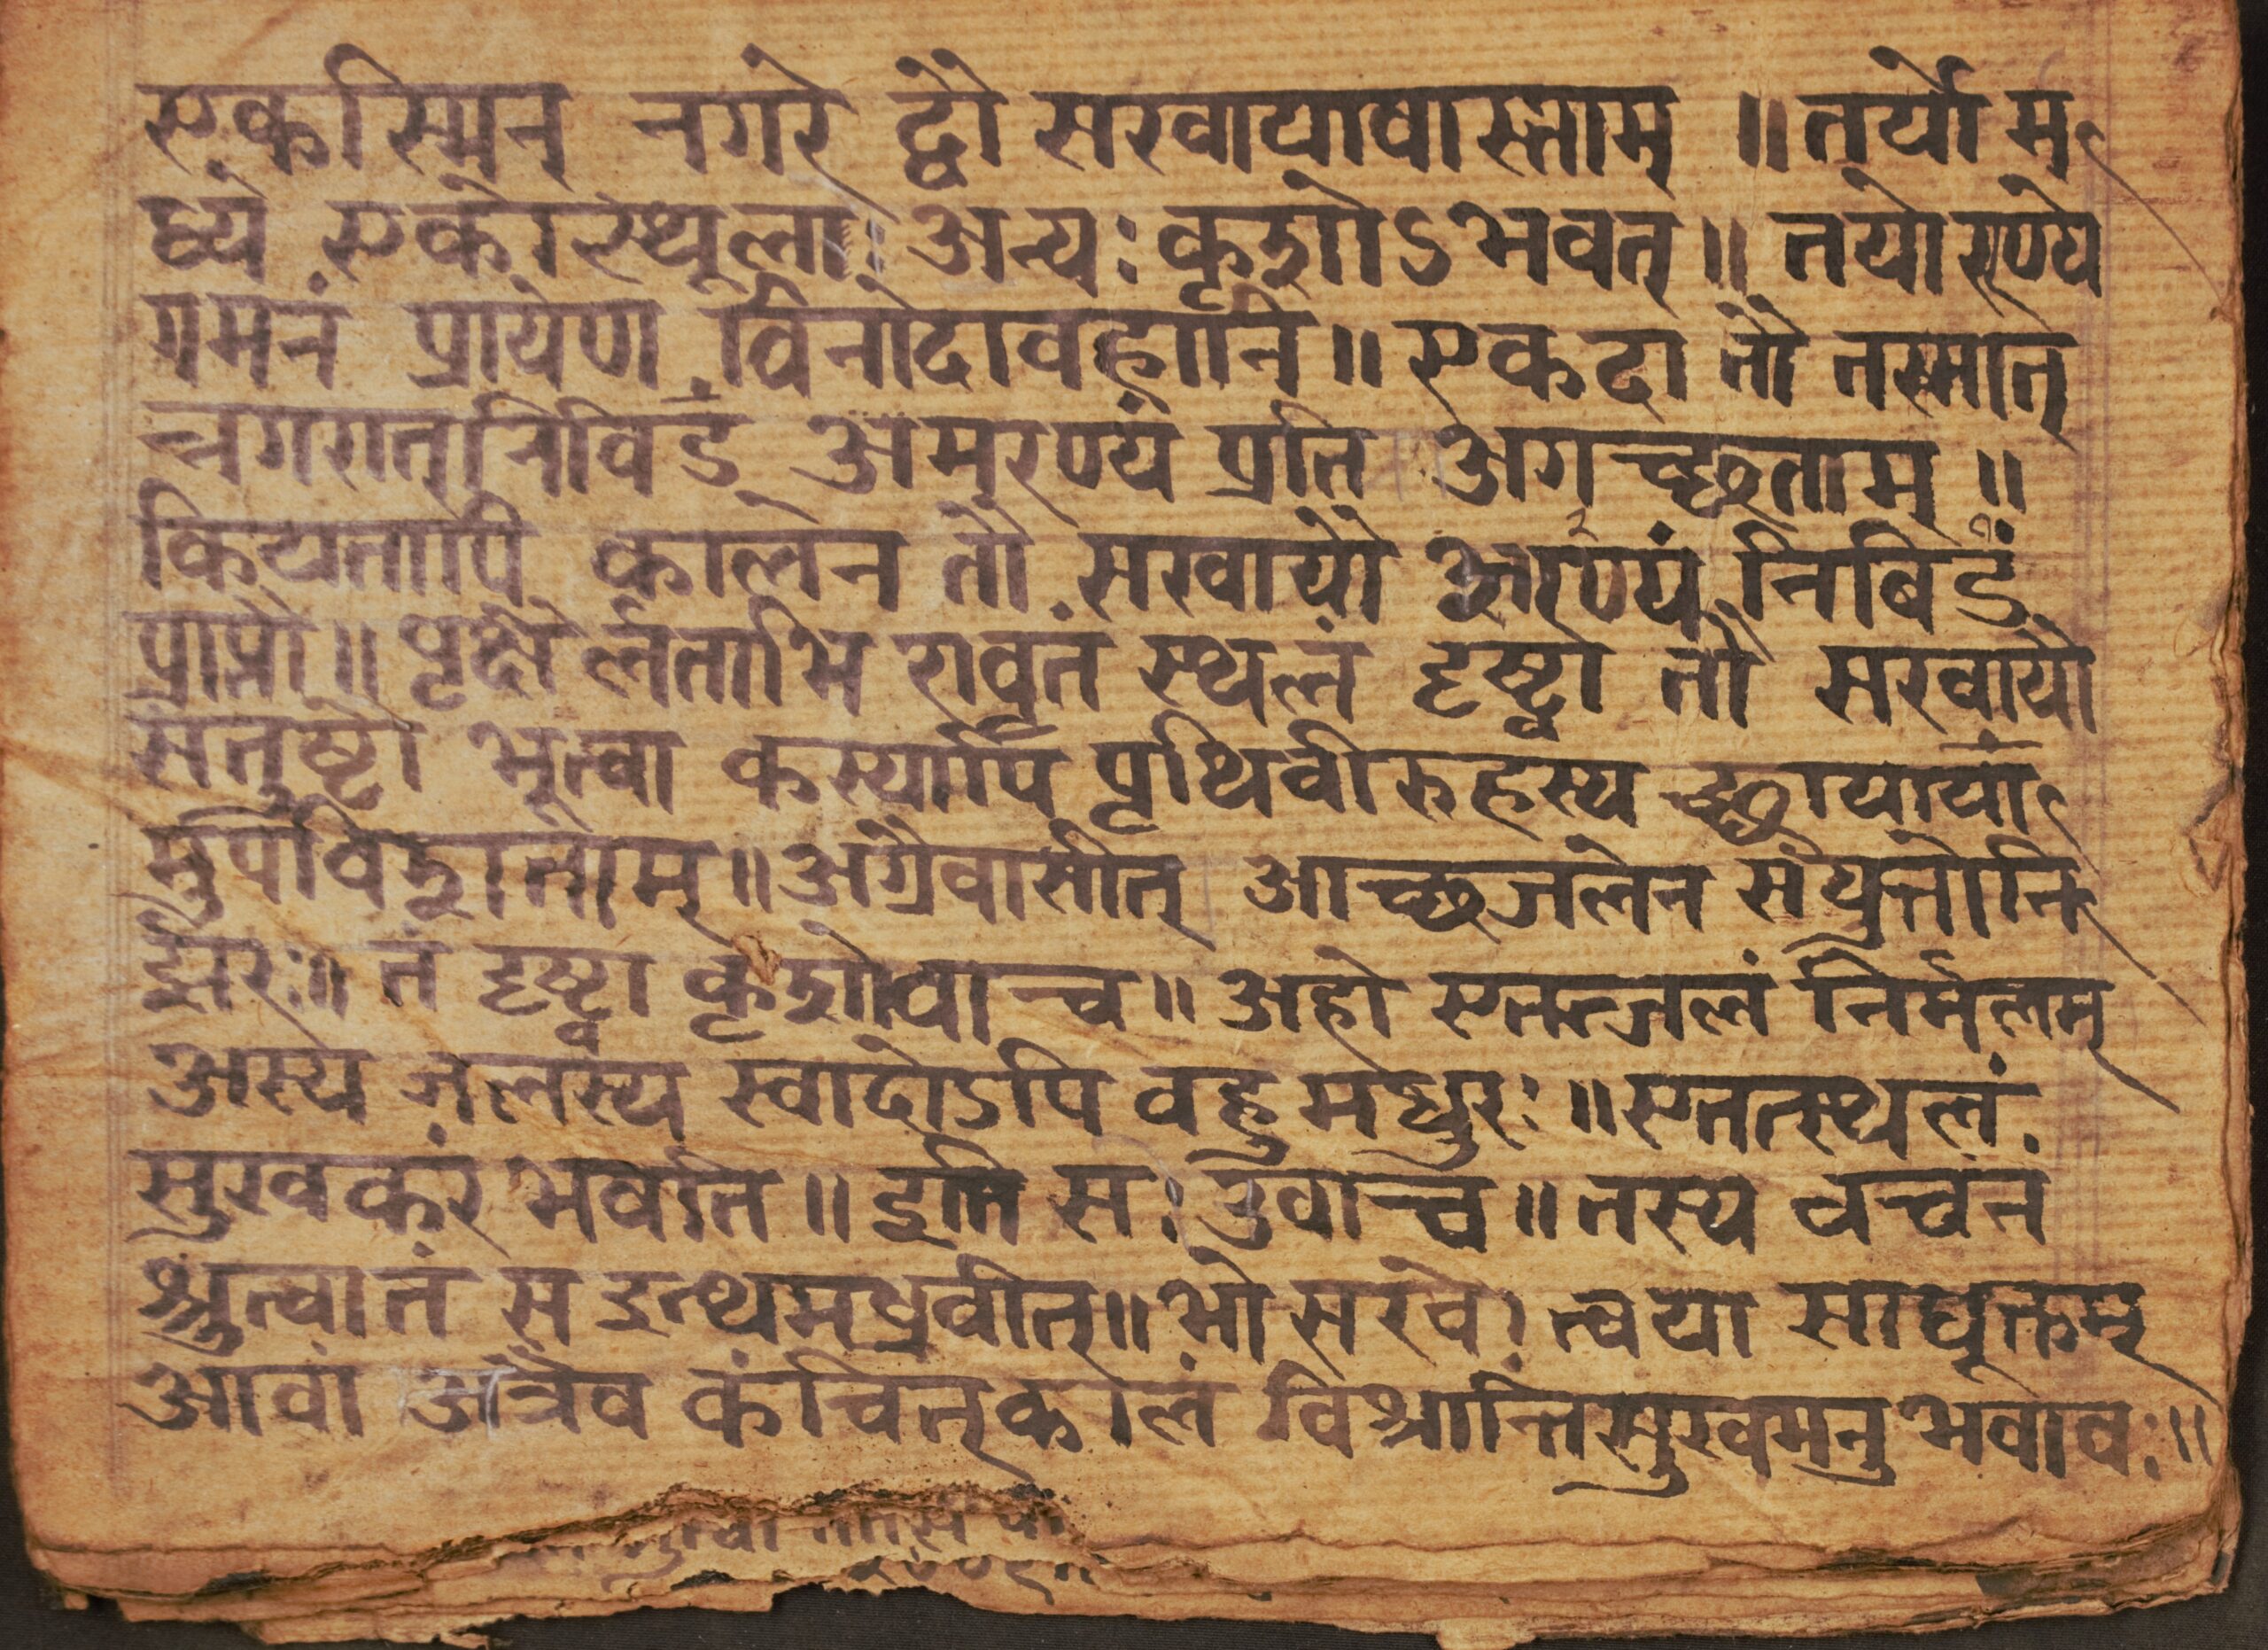 एकस्मिन् नगरे द्वौ सखायावास्ताम् ॥ तर्योम्
ध्ये एकोस्थूलाः अन्यः कृशोऽभवत् ॥ तयोरण्ये
गमनं प्रायेण विनोदावहानि ॥ एकदा तौ तस्मात्
न्नगरात् निविडं अमरण्यं प्रति अगच्छताम् ॥
कियतापि कालेन तौ सखायौ अरण्यं निबिडं
प्राप्तौ ॥ पृक्षै र्लताभि रावृतं स्थलं दृष्ट्वा तौ सखायौ
संतुष्टौ भूत्वा कस्यापि पृथिवीरुहस्य च्छायायां
मुपविशताम् ॥ अग्रैवासीत् आच्छजलेन संपुत्तोनि
र्झरः ॥ तं दृष्ट्वा कृशोवाच ॥ अहो एतत्जलं निर्मलम्
अस्य जलस्य स्वादोऽपि वहु मधुरः ॥ एतत्स्थलं
सुखकरं भवति ॥ इति सः उवाच ॥ तस्य वचनं
श्रुत्वा तं स इत्थमब्रवीत् ॥ भो सखे । त्वया साधूक्तम्
आवां अत्रैव कंचित् कालं विश्रान्तिसुखमनुभवावः ॥